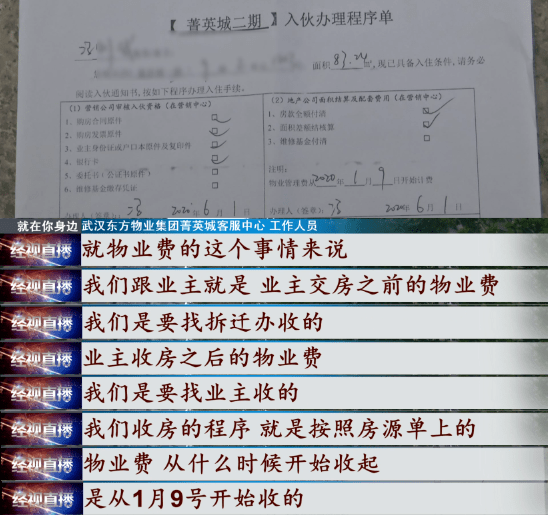 【 菁英城二期 】入伙办理程序单
面积 83.24 ,现已具备入住条件,请务必
阅读入伙通知书,按如下程序办理入住手续。
(1)营销公司审核入伙资格(在营销中心)
1、购房合同原件
2、购房发票原件
3、业主身份证或户口本原件及复印件
4、银行卡
5、委托书(公证书原件)
6、维修基金缴存凭证
办理人(签章): 2020年 6 月 1 日
(2)地产公司面积结算及配套费用(在营销中心)
1、房款全额付清
2、面积差额结核算
3、维修基金付清
注明:
物业管理费从2020年 1 月 9 日开始计费
办理人(签章): 2020年 6 月 1 日
就在你身边 武汉东方物业集团菁英城客服中心 工作人员
经视直播 就物业费的这个事情来说
经视直播 我们跟业主就是 业主交房之前的物业费
经视直播 我们是要找拆迁办收的
经视直播 业主收房之后的物业费
经视直播 我们是要找业主收的
经视直播 我们收房的程序 就是按照房源单上的
经视直播 物业费 从什么时候开始收起
经视直播 是从1月9号开始收的